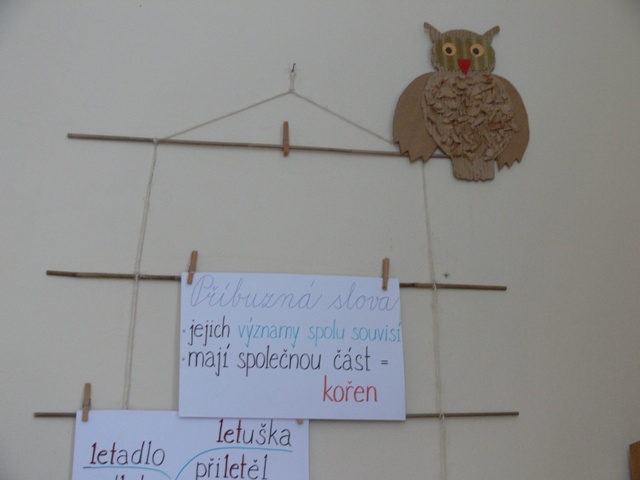 Příbuzná slova
· jejich významy spolu souvisí
· mají společnou část =
kořen
letuška
letadlo
přiletěl